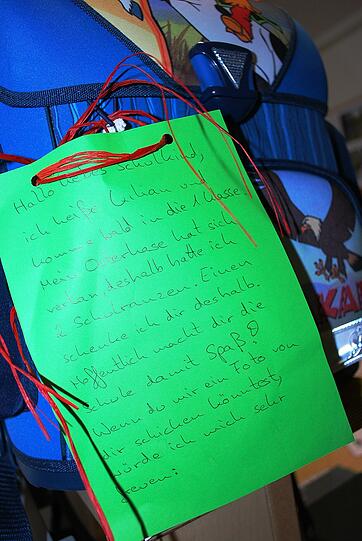 Hallo liebes Schulkind,
ich heiße Kilian und
komme bald in die 1. Klasse.
Mein Osterhase hat sich
vertan, deshalb hatte ich
2 Schulranzen. Einen
schenke ich dir deshalb.
Hoffentlich macht dir die
Schule damit Spaß.
Wenn du mir ein Foto von
dir schicken könntest,
würde ich mich sehr
freuen!